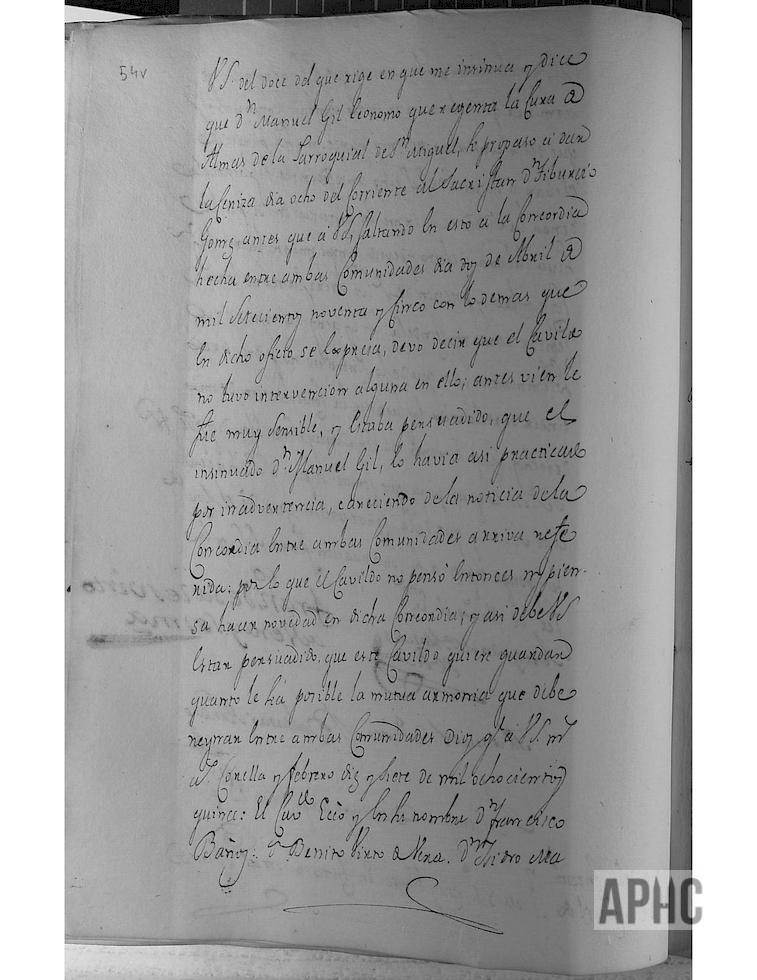 54v
VS. del doce del que rige en que me insinua y dice
que Dn. Manuel Gil Economo que regenta la Cura de
Almas de la Parroquial de Sn. Miguel, se propaso a dar
la Ceniza dia ocho del Corriente al Sacristan Dn. Tiburcio
Gomz. antes que a VS, faltando en esto a la Concordia
hecha entre ambas Comunidades dia dos de Abril de
mil Setecientos noventa y Cinco con lo demas que
En dicho oficio se Expresa, devo decir que el Cavildo
no tuvo intervencion alguna en ello; antes vien le
fue muy Sensible, y Estaba persuadido, que el
insinuado Dn. Manuel Gil, lo havia asi practicado
por inadvertencia, careciendo de la noticia de la
Concordia Entre ambas Comunidades arriva refe
rida: por lo que el Cavildo no pensó Entonces ni pien-
sa hacer novedad en dicha Concordia; y asi debe VS
Estar persuadido, que este Cavildo quiere guardar
quanto le há posible la mutua armonia que debe
reynar Entre ambas Comunidades Dios gue. a VS. ms.
as. Corella y febrero diez y siete de mil ochocientos
quince: El Cavdo. Ecco. y En su nombre Dn. francisco
Bañoz: Dn. Benito Virto de Vera. Dn. Isidro Ma
APHC